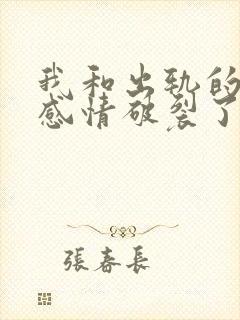 我和出轨的
感情破裂了
張春長